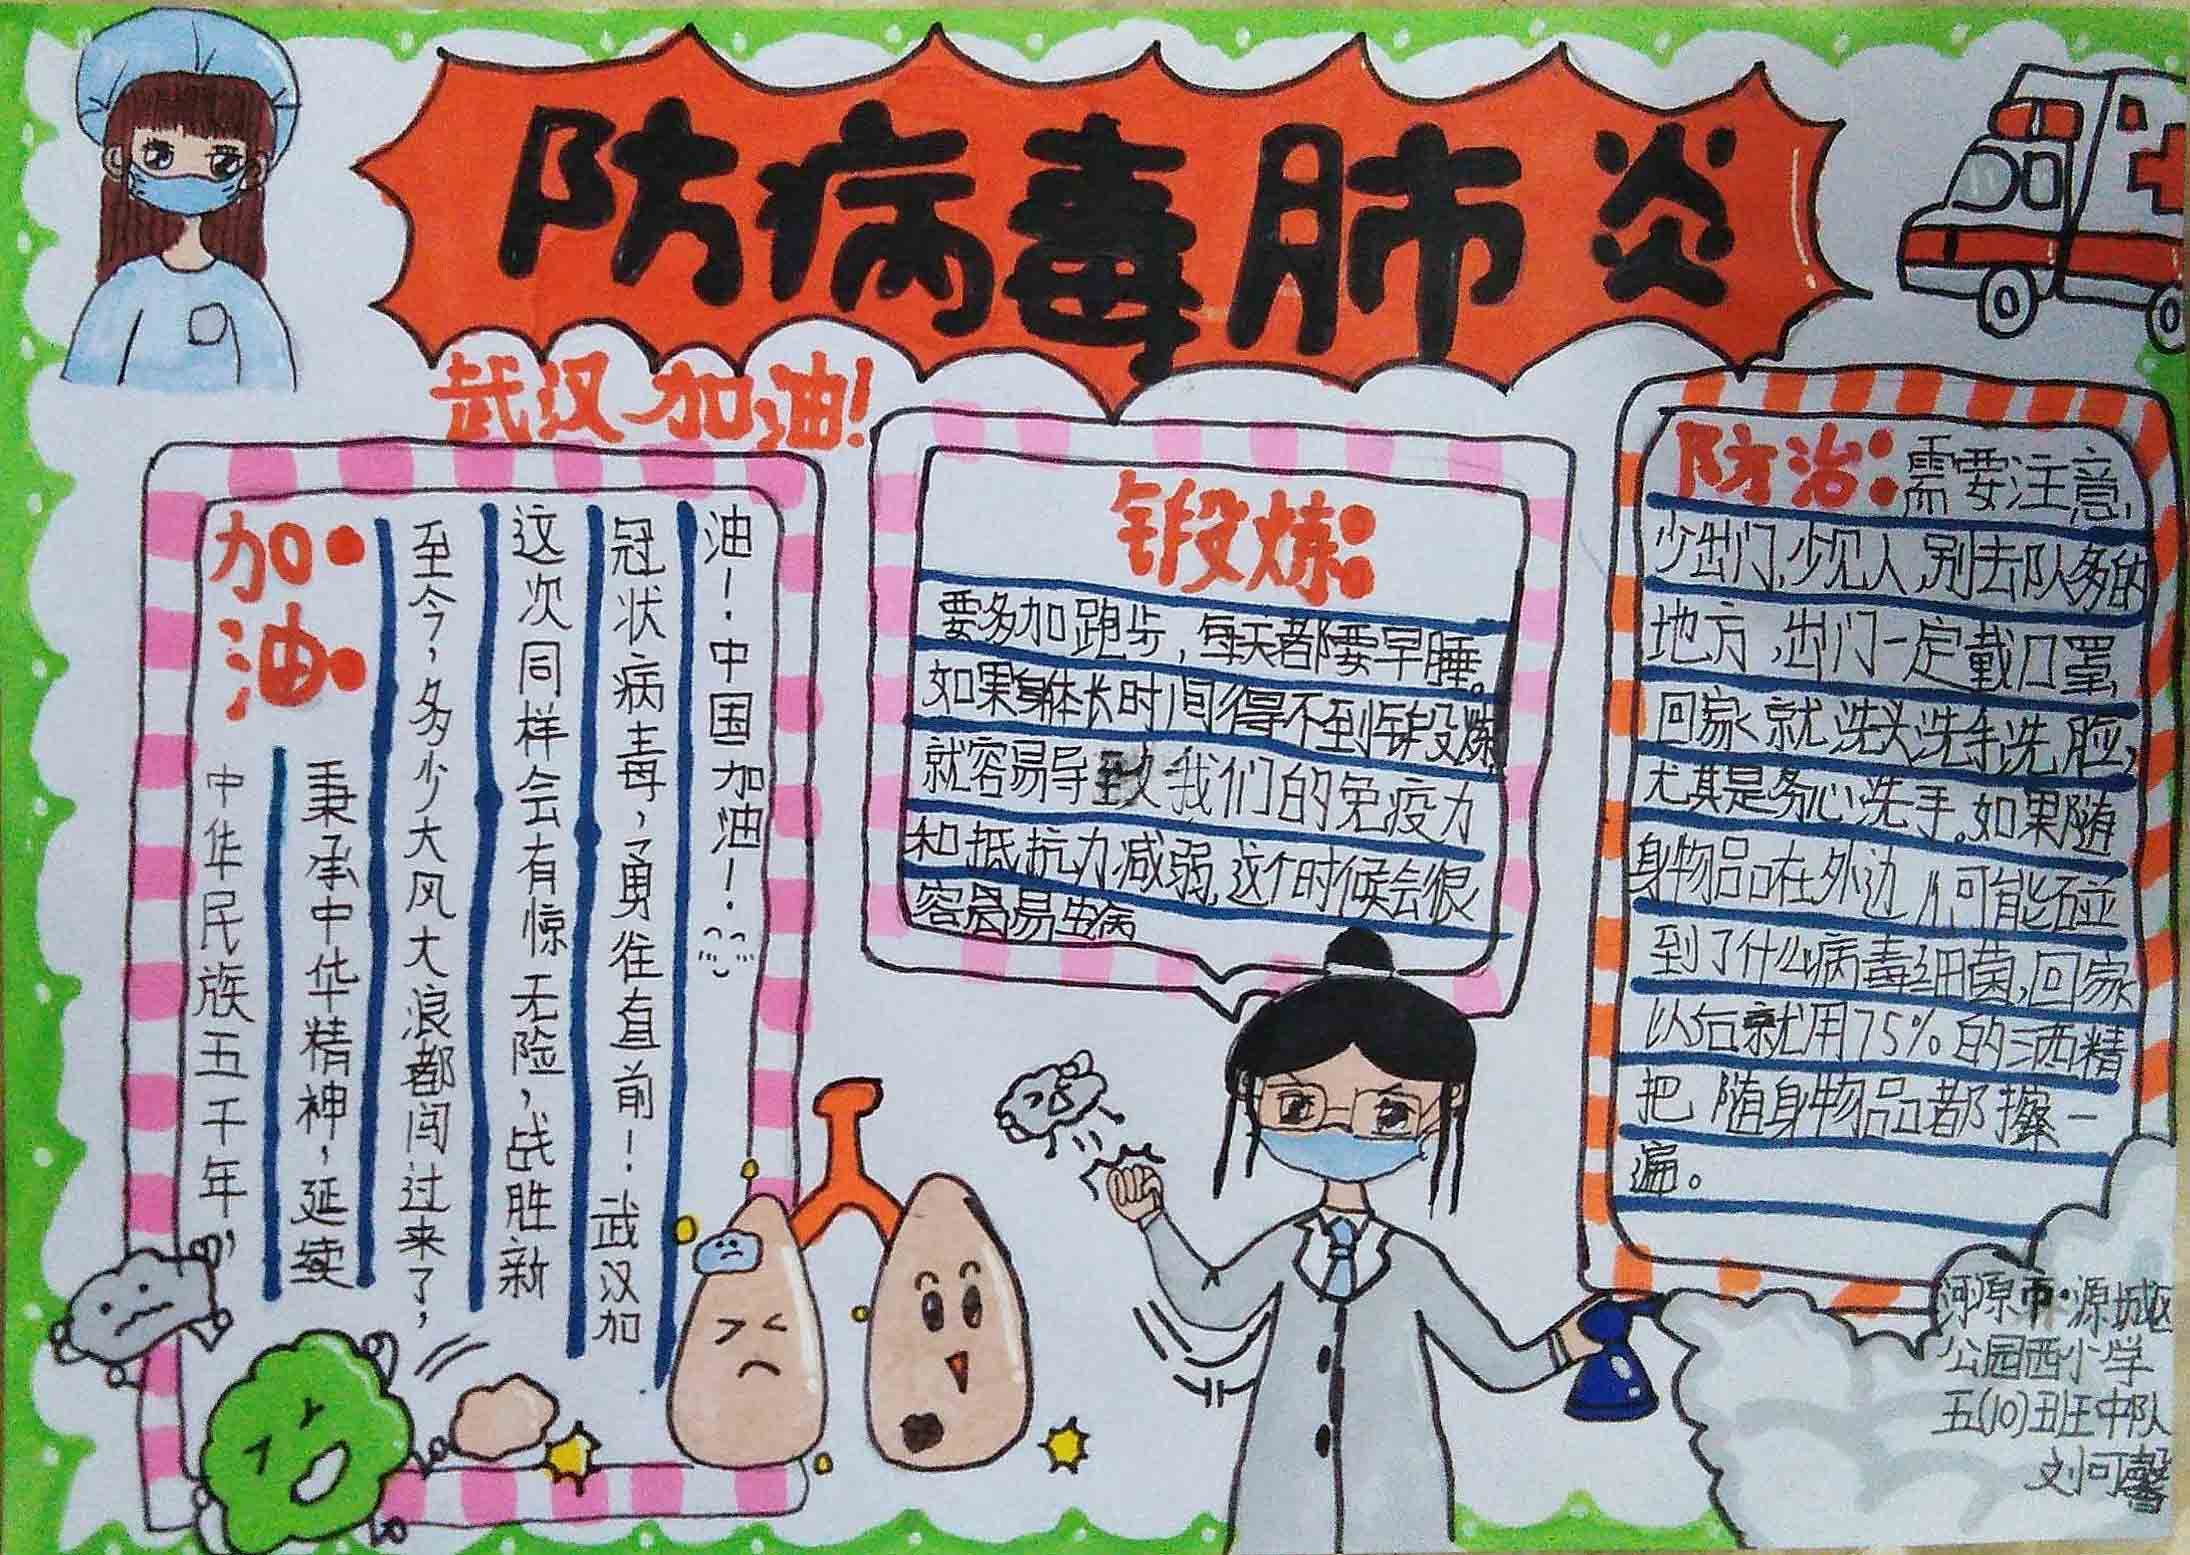 防病毒肺炎
武汉加油!
加油:
中华民族五千年,
秉承中华精神,延续
至今,多少大风大浪都闯过来了,
这次同样会有惊无险,战胜新
冠状病毒,勇往直前!武汉加
油!中国加油!
锻炼:
要多加跑步,每天都要早睡。
如果身体长时间得不到锻炼
就容易导致我们的免疫力
和抵抗力减弱,这个时候会很
容易易生病
防治:需要注意,
少出门,少见人,别去队多的
地方,出门一定戴口罩,
回家就洗头洗手洗脸,
尤其是务必洗手。如果随
身物品在外边,可能碰
到了什么病毒细菌,回家
以后就用75%的酒精
把随身物品都擦一
遍。
河源市·源城区
公园西小学
五(10)班中队
刘可馨